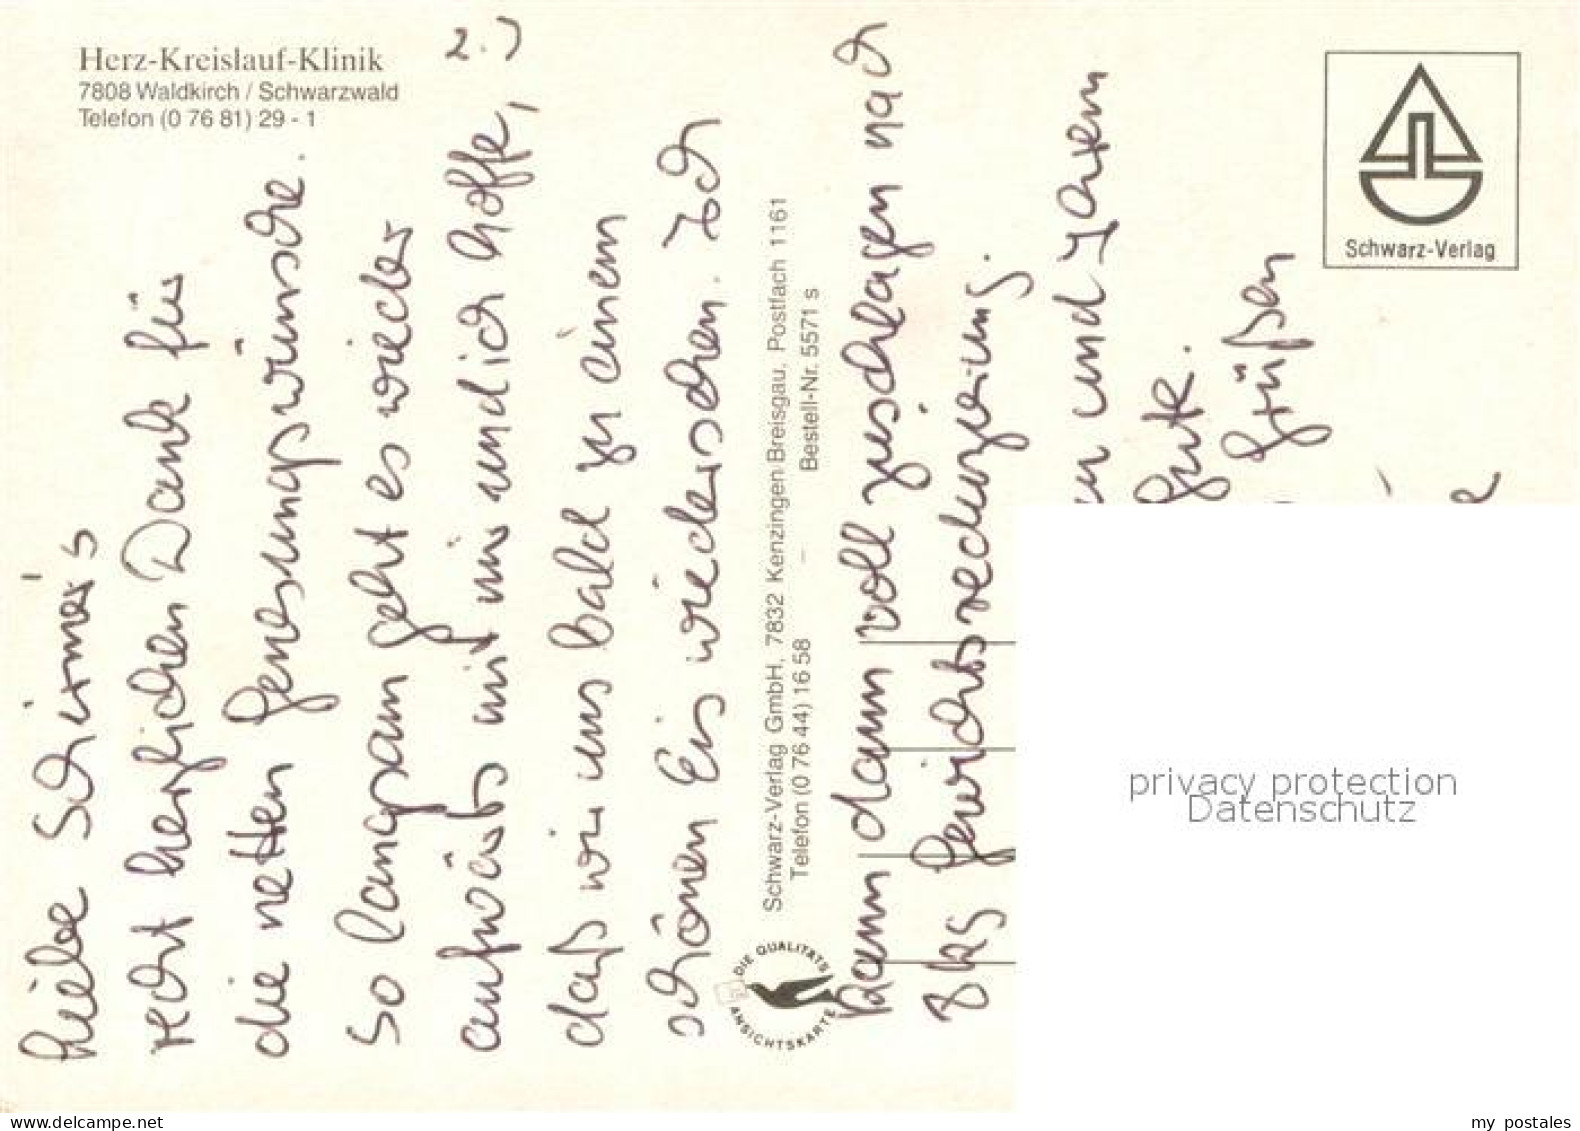 Herz-Kreislauf-Klinik
7808 Waldkirch / Schwarzwald
Telefon (0 76 81) 29 - 1
2.)
Liebe Schirmer's
recht herzlichen Dank für
die netten Genesungswünsche.
So langsam geht es wieder
aufwärts mit mir und ich hoffe,
daß wir uns bald zu einem
schönen Eis wiedersehen. Ich
kann dann voll zuschlagen nach
8 kg Gewichtsreduzierung.
und Ihrem
Gute.
Grüßen
Schwarz-Verlag GmbH, 7832 Kenzingen Breisgau, Postfach 1161
Telefon (0 76 44) 16 58 – Bestell-Nr. 5571 s
DIE QUALITÄTS
ANSICHTSKARTE
Schwarz-Verlag
privacy protection
Datenschutz
www.delcampe.net
my_postales